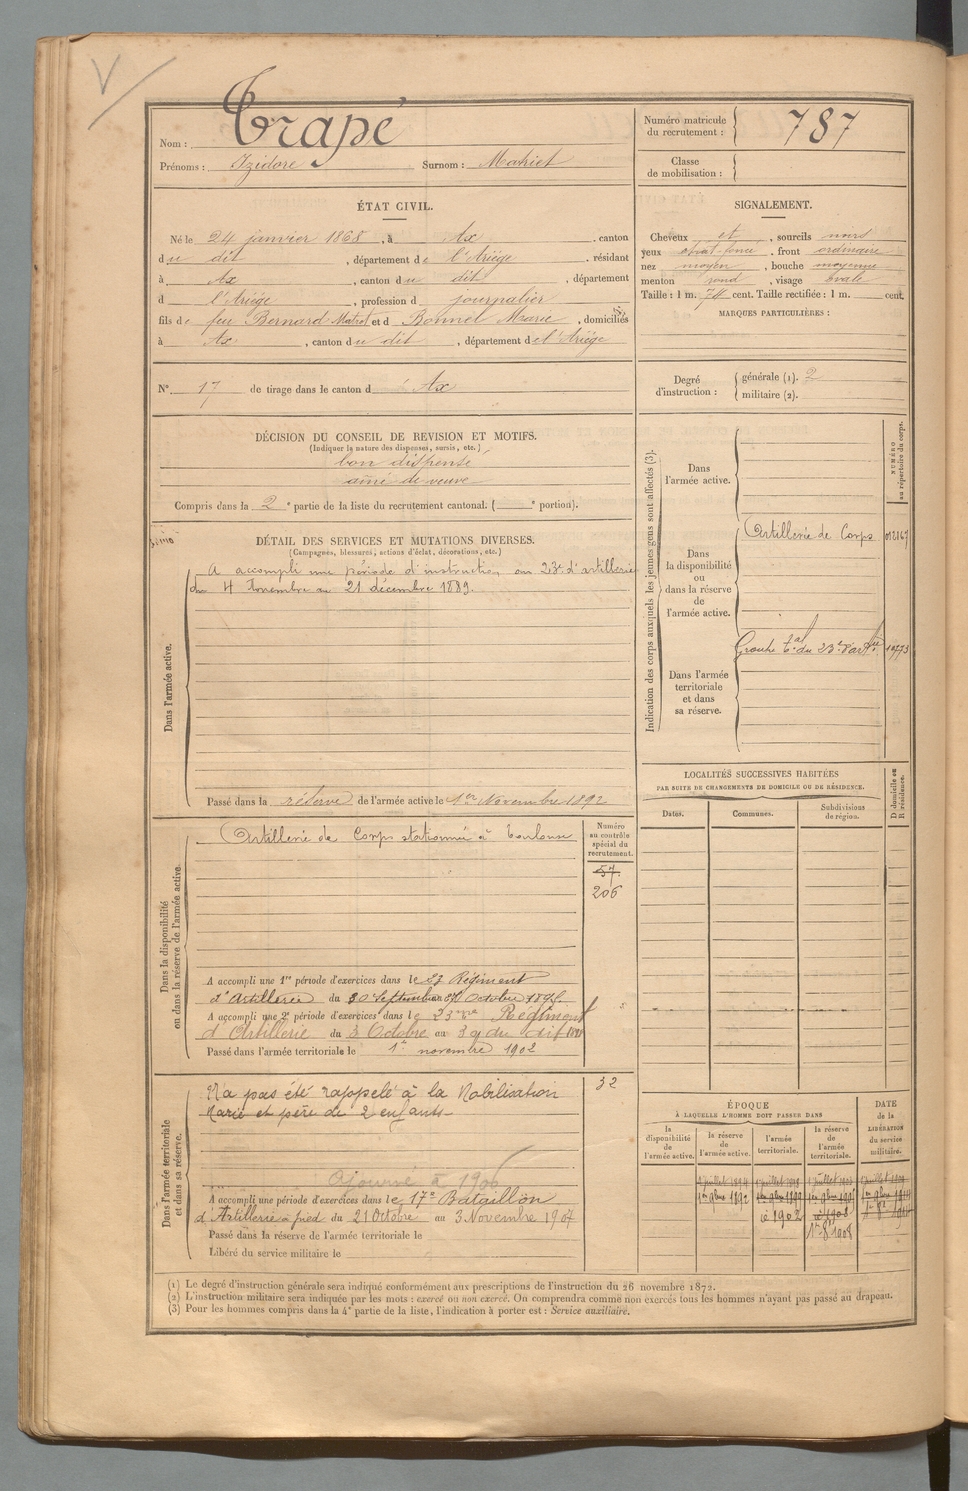 V
Nom : Trapé
Prénoms : Izidore Surnom :
Numéro matricule
du recrutement : 787
Classe
de mobilisation :
ÉTAT CIVIL.
Né le 24 janvier 1868, à Ax, canton
du dit, département de l'Ariège, résidant
à Ax, canton du dit, département
d l'Ariège, profession d journalier
fils de feu Bernard et d Bonnel Marie, domiciliés
à Ax, canton du dit, département de l'Ariège
N° 17 de tirage dans le canton d Ax
SIGNALEMENT.
Cheveux et, sourcils noirs
yeux, front ordinaire
nez moyen, bouche moyenne
menton rond, visage ovale
Taille : 1 m. 74 cent. Taille rectifiée : 1 m. cent.
MARQUES PARTICULIÈRES :
Degré
d'instruction :
générale (1). 2
militaire (2).
DÉCISION DU CONSEIL DE REVISION ET MOTIFS.
(Indiquer la nature des dispenses, sursis, etc.)
bon dispensé
aîné de veuve
Compris dans la 2e partie de la liste du recrutement cantonal. ( e portion).
DÉTAIL DES SERVICES ET MUTATIONS DIVERSES.
(Campagnes, blessures, actions d'éclat, décorations, etc.)
Dans l'armée active.
A accompli une période d'instruction au 23e d'artillerie
du 4 Novembre au 21 décembre 1889.
Passé dans la réserve de l'armée active le 1er Novembre 1892
Indication des corps auxquels les jeunes gens sont affectés (3).
NUMÉRO
au répertoire du corps.
Dans
l'armée active.
Dans
la disponibilité
ou
dans la réserve
de
l'armée active.
Artillerie de Corps
Dans l'armée
territoriale
et dans
sa réserve.
Groupe tal du 23e d'artie
LOCALITÉS SUCCESSIVES HABITÉES
PAR SUITE DE CHANGEMENTS DE DOMICILE OU DE RÉSIDENCE.
Dates.
Communes.
Subdivisions
de région.
D domicile ou
R résidence.
Dans la disponibilité
ou dans la réserve de l'armée active.
Artillerie de Corps stationnée à Toulouse
Numéro
au contrôle
spécial du
recrutement.
57.
206
A accompli une 1re période d'exercices dans le 23 Régiment
d'Artillerie du
A accompli une 2e période d'exercices dans le 23me Régiment
d'Artillerie du 3 Octobre au 30 du dit
Passé dans l'armée territoriale le 1er novembre 1902
Dans l'armée territoriale
et dans sa réserve.
N'a pas été rappelé à la Mobilisation
Marié et père de 2 enfants
32
Ajourné à 1906
A accompli une période d'exercices dans le 17e Bataillon
d'Artillerie à pied du 21 Octobre au 3 Novembre 1907
Passé dans la réserve de l'armée territoriale le
Libéré du service militaire le
ÉPOQUE
À LAQUELLE L'HOMME DOIT PASSER DANS
la
disponibilité
de
l'armée active.
la réserve
de
l'armée active.
l'armée
territoriale.
la réserve
de
l'armée
territoriale.
DATE
de la
LIBÉRATION
du service
militaire.
(1) Le degré d'instruction générale sera indiqué conformément aux prescriptions de l'instruction du 26 novembre 1872.
(2) L'instruction militaire sera indiquée par les mots : exercé ou non exercé. On comprendra comme non exercés tous les hommes n'ayant pas passé au drapeau.
(3) Pour les hommes compris dans la 4e partie de la liste, l'indication à porter est : Service auxiliaire.